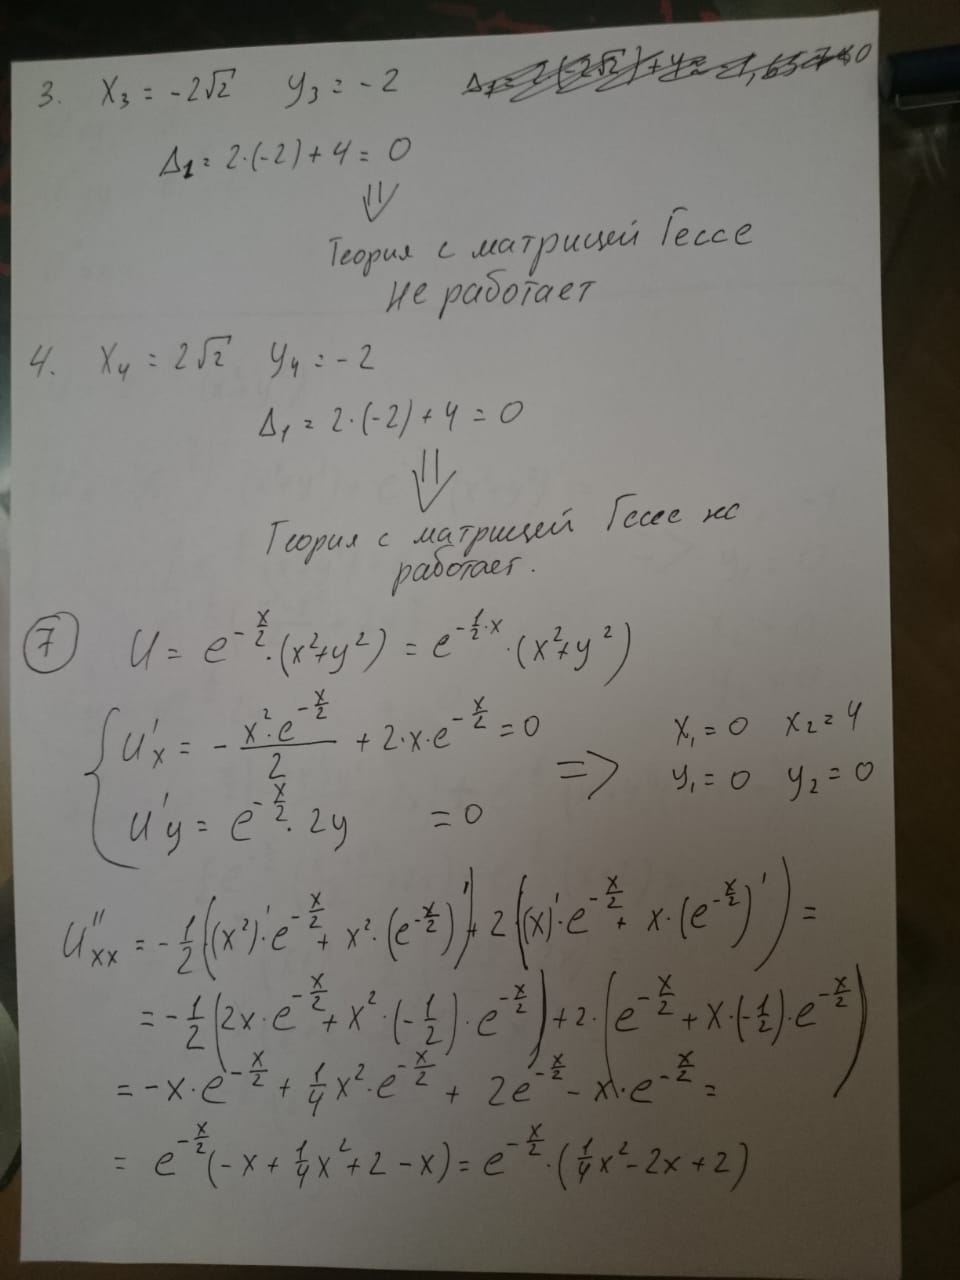 3. x₃ = -2√2 y₃ = -2
Δ₁ = 2·(-2) + 4 = 0
⇓
Теория с матрицей Гессе
не работает
4. x₄ = 2√2 y₄ = -2
Δ₁ = 2·(-2) + 4 = 0
⇓
Теория с матрицей Гессе не
работает.
⑦ U = e^(-x/2)·(x²+y²) = e^(-1/2·x)·(x²+y²)
{ U'x = -(x²·e^(-x/2))/2 + 2·x·e^(-x/2) = 0 => x₁ = 0 x₂ = 4
U'y = e^(-x/2)·2y = 0 y₁ = 0 y₂ = 0
U''xx = -1/2((x²)'·e^(-x/2) + x²·(e^(-x/2))') + 2((x)'·e^(-x/2) + x·(e^(-x/2))') =
= -1/2(2x·e^(-x/2) + x²·(-1/2)·e^(-x/2)) + 2·(e^(-x/2) + x·(-1/2)·e^(-x/2))
= -x·e^(-x/2) + 1/4x²·e^(-x/2) + 2e^(-x/2) - x·e^(-x/2) =
= e^(-x/2)(-x + 1/4x² + 2 - x) = e^(-x/2)·(1/4x² - 2x + 2)